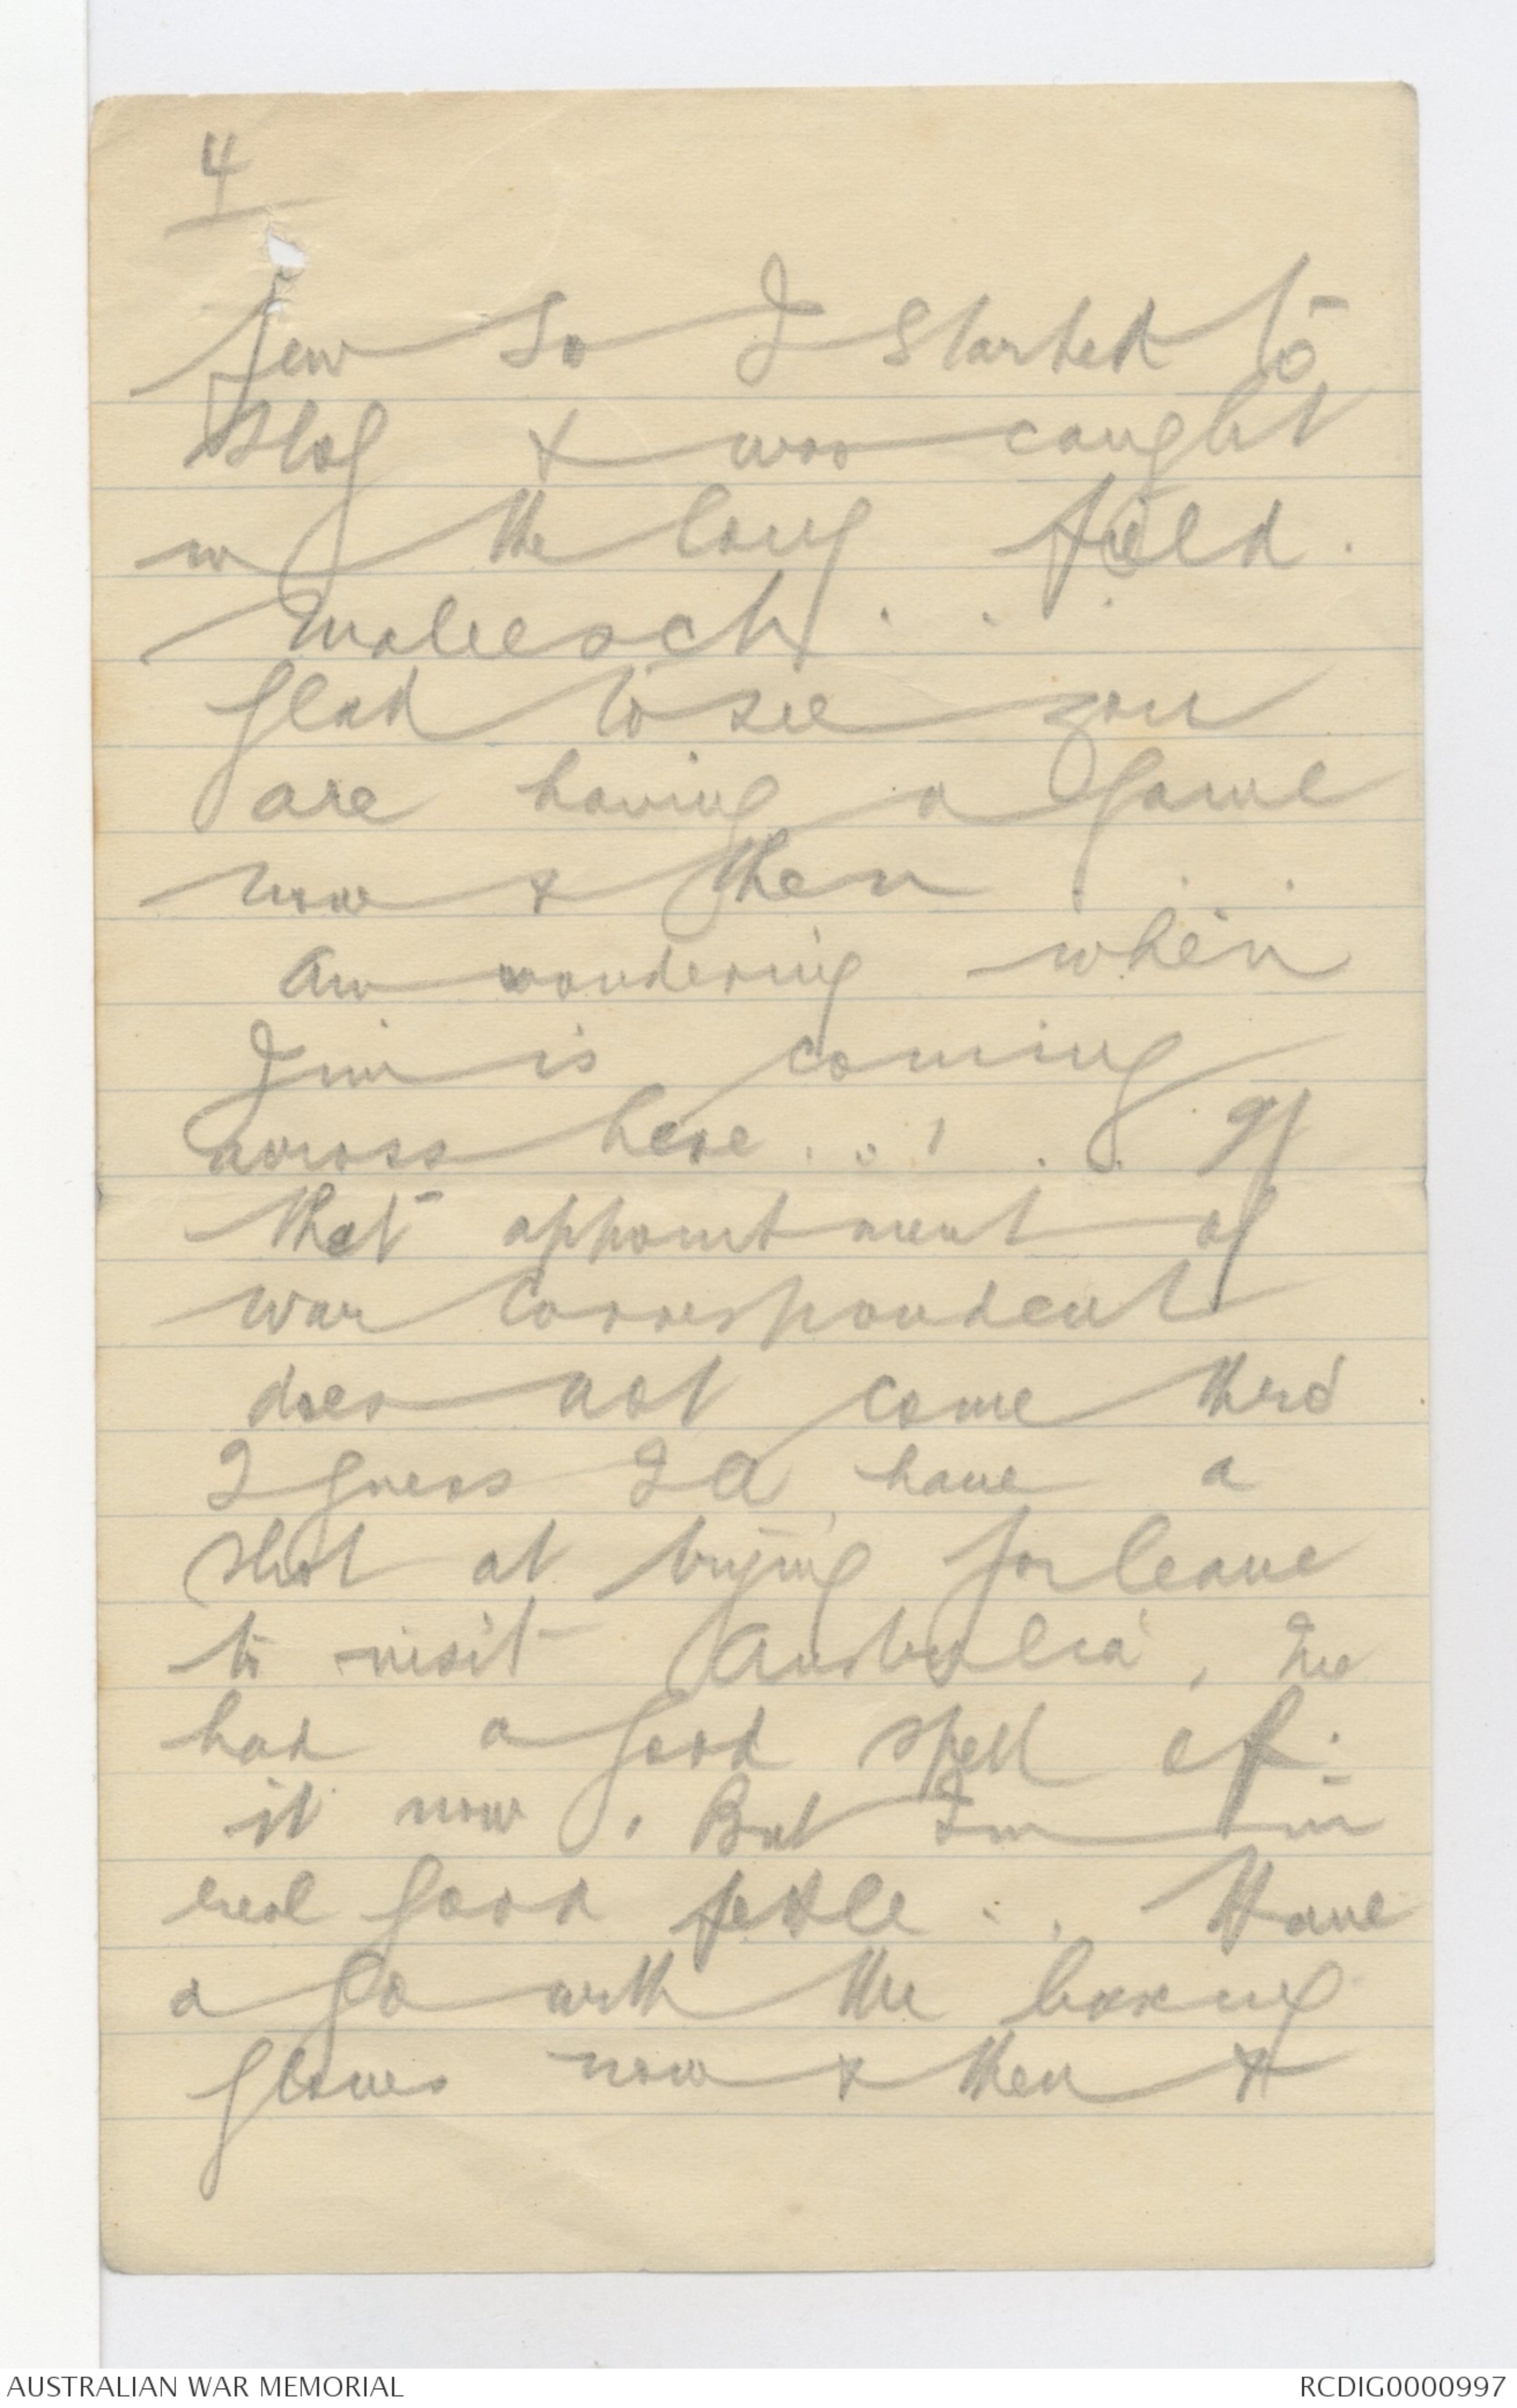 4
few so I started to
slog & was caught
in the long field.
Maleesch . . .
Glad to see you
are having a game
now & then . . .
Am wondering when
Jim is coming
across here . . ! . . If
that appointment of
war correspondent
does not come thro'
I guess I'd have a
shot at trying for leave
to visit Australia, I've
had a good spell of
it now. But I'm in
real good fettle . . Have
a go with the boxing
gloves now & then &
AUSTRALIAN WAR MEMORIAL
RCDIG0000997